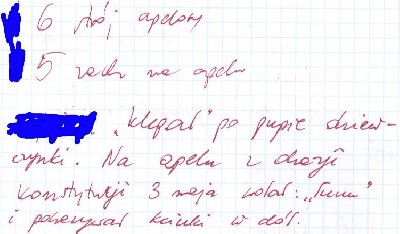 6 strój apelowy
5 zach na apelu
„klepał" po pupie dziew-
czynki. Na apelu z okazji
konstytucji 3 maja wołał: „Buuu"
i pokazywał kciuki w dół.